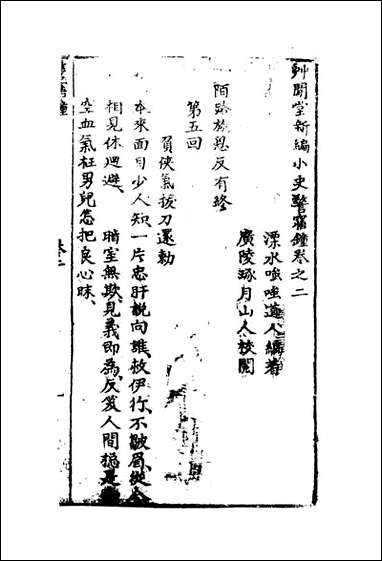 艸閒堂新編小史警寤鐘卷之二
溧水嗤嗤道人編著
廣陵琢月山人校閱
陌路施恩反有終
第五回
負俠氣拔刀還勸
本來面目少人知、一片忠肝説向誰、救伊行、不皺眉、從今
相見休迴避、暗室無欺、見義即為、反笑人間總是
空、血氣枉男兒、怎把良心昧、